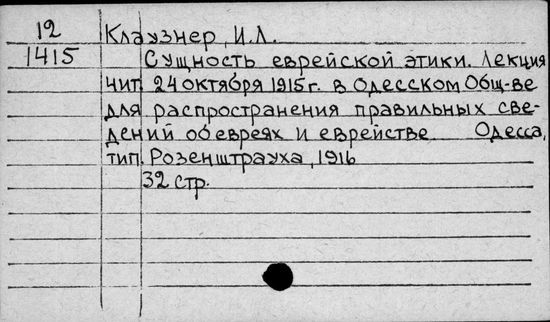 12 Клаузнер, И.Л.
1415 Сущность еврейской этики. Лекция
чит. 24 октября 1915 г. в Одесском Общ-ве
для распространения правильных све-
дений об евреях и еврействе Одесса,
тип. Розенштрауха, 1916
32 стр.